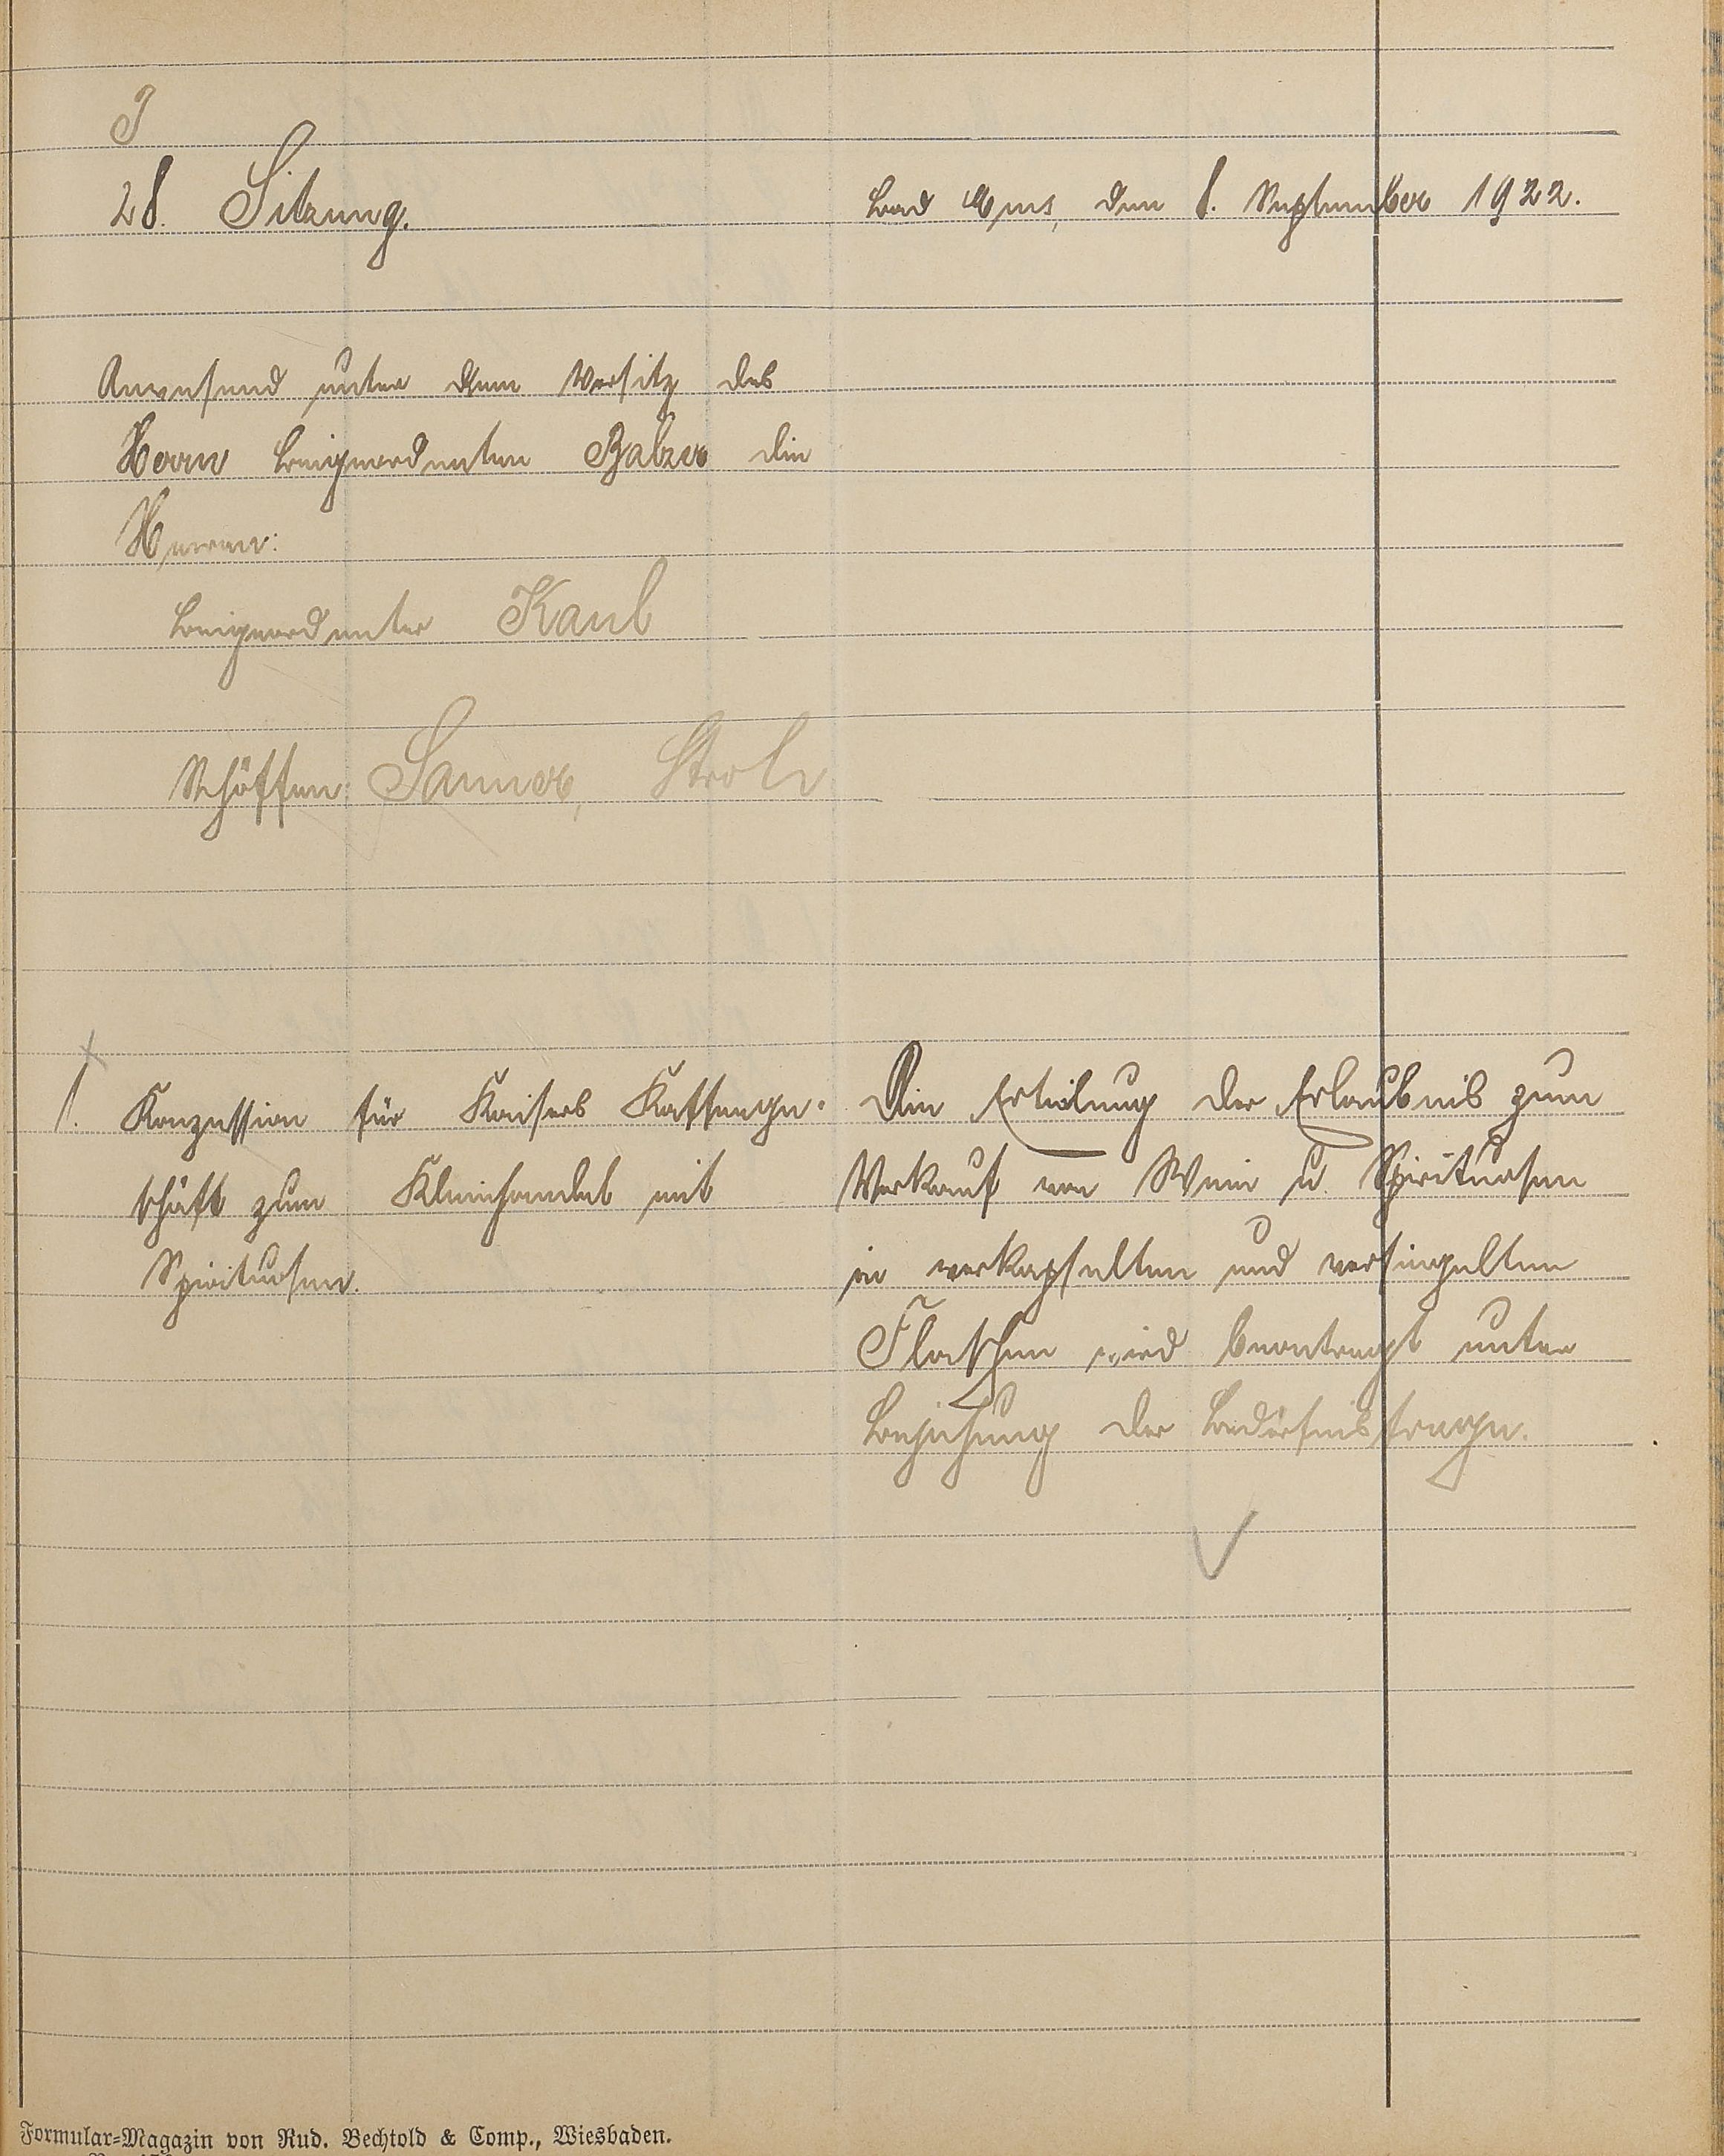 J
28. Sitzung.
Bad Ems, den 8. September 1922.
Anwesend unter dem Vorsitz des
Herrn Beigeordneten Balzer die
Herren:
Beigeordneter Kaul
Schöffen: Sauer, Stroh
1. Konzession für Kaisers Kaffeege-
schäft zum Kleinhandel mit
Spirituosen.
Die Erteilung der Erlaubnis zum
Verkauf von Wein u. Spirituosen
in verkapselten und versiegelten
Flaschen wird beantragt unter
Bejahung der Bedürfnisfrage.
Formular-Magazin von Rud. Bechtold & Comp., Wiesbaden.